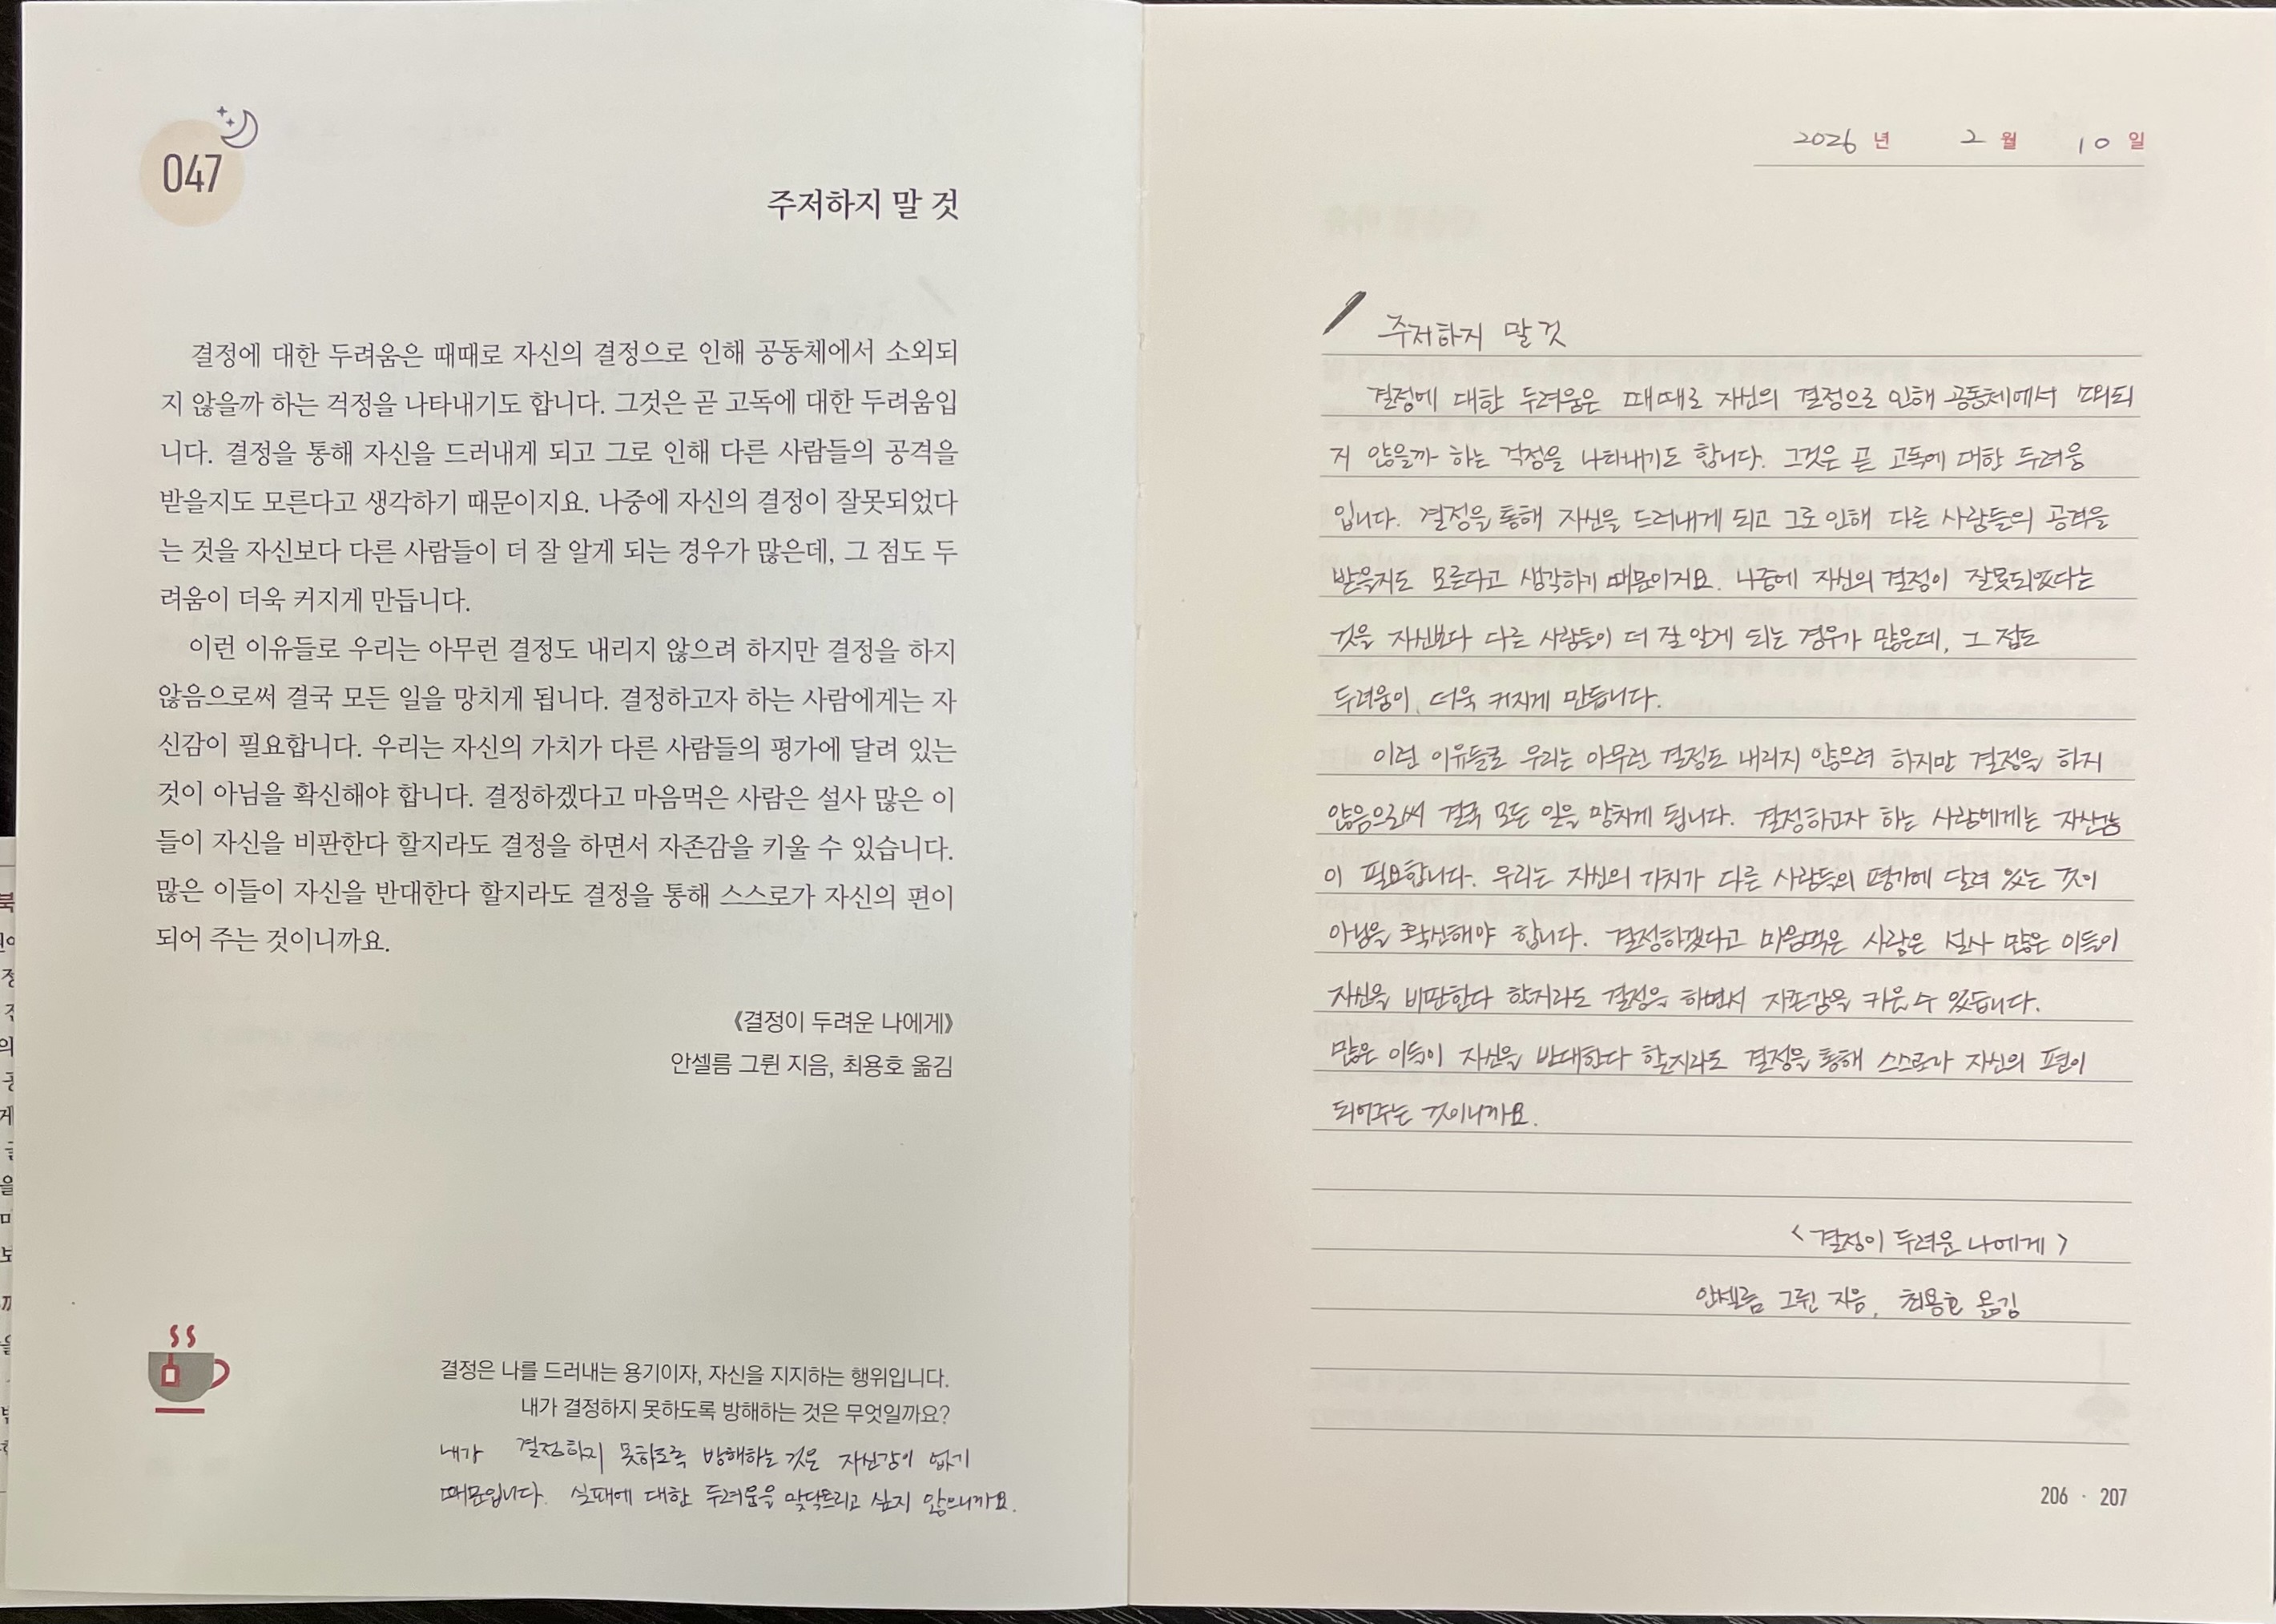 047
주저하지 말 것
결정에 대한 두려움은 때때로 자신의 결정으로 인해 공동체에서 소외되
지 않을까 하는 걱정을 나타내기도 합니다. 그것은 곧 고독에 대한 두려움입
니다. 결정을 통해 자신을 드러내게 되고 그로 인해 다른 사람들의 공격을
받을지도 모른다고 생각하기 때문이지요. 나중에 자신의 결정이 잘못되었다
는 것을 자신보다 다른 사람들이 더 잘 알게 되는 경우가 많은데, 그 점도 두
려움이 더욱 커지게 만듭니다.
이런 이유들로 우리는 아무런 결정도 내리지 않으려 하지만 결정을 하지
않음으로써 결국 모든 일을 망치게 됩니다. 결정하고자 하는 사람에게는 자
신감이 필요합니다. 우리는 자신의 가치가 다른 사람들의 평가에 달려 있는
것이 아님을 확신해야 합니다. 결정하겠다고 마음먹은 사람은 설사 많은 이
들이 자신을 비판한다 할지라도 결정을 하면서 자존감을 키울 수 있습니다.
많은 이들이 자신을 반대한다 할지라도 결정을 통해 스스로가 자신의 편이
되어 주는 것이니까요.
《결정이 두려운 나에게》
안셀름 그륀 지음, 최용호 옮김
결정은 나를 드러내는 용기이자, 자신을 지지하는 행위입니다.
내가 결정하지 못하도록 방해하는 것은 무엇일까요?
내가 결정하지 못하도록 방해하는 것은 자신감이 없기
때문입니다. 실패에 대한 두려움을 맞닥드리고 싶지 않으니까요.
2026 년 2 월 10 일
주저하지 말 것
결정에 대한 두려움은 때때로 자신의 결정으로 인해 공동체에서 소외되
지 않을까 하는 걱정을 나타내기도 합니다. 그것은 곧 고독에 대한 두려움
입니다. 결정을 통해 자신을 드러내게 되고 그로 인해 다른 사람들의 공격을
받을지도 모른다고 생각하기 때문이지요. 나중에 자신의 결정이 잘못되었다는
것을 자신보다 다른 사람들이 더 잘 알게 되는 경우가 많은데, 그 점도
두려움이 더욱 커지게 만듭니다.
이런 이유들로 우리는 아무런 결정도 내리지 않으려 하지만 결정을 하지
않음으로써 결국 모든 일을 망치게 됩니다. 결정하고자 하는 사람에게는 자신감
이 필요합니다. 우리는 자신의 가치가 다른 사람들의 평가에 달려 있는 것이
아님을 확신해야 합니다. 결정하겠다고 마음먹은 사람은 설사 많은 이들이
자신을 비판한다 할지라도 결정을 하면서 자존감을 키울 수 있습니다.
많은 이들이 자신을 반대한다 할지라도 결정을 통해 스스로가 자신의 편이
되어주는 것이니까요.
<결정이 두려운 나에게>
안셀름 그륀 지음, 최용호 옮김
206 · 207